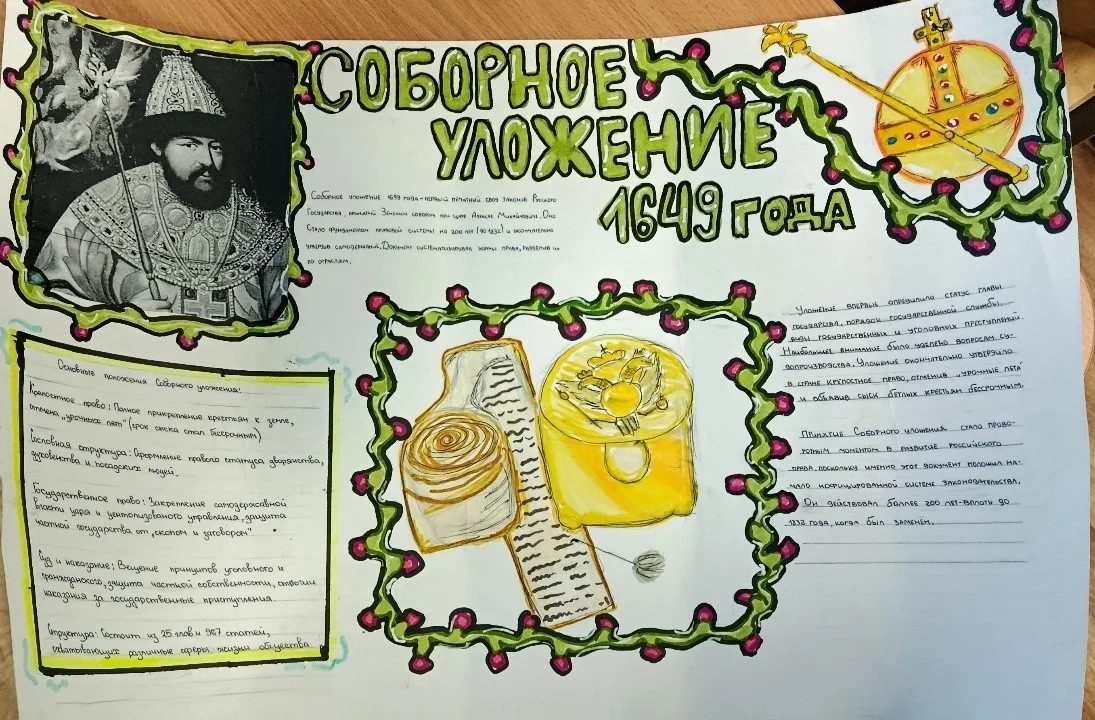 СОБОРНОЕ
УЛОЖЕНИЕ
1649 ГОДА
Соборное уложение 1649 года-первый печатный свод законов Русского
Государсва, принятый Земским собором при царе Алексее Михайловиче. Оно
стало фундаментом правовой системы на 200 лет (до 1832) и окончательно
утвердив самодержавие. Документ систематизировал нормы права, разделив их
по отраслям.
Основные положения Соборного уложения:
Крепостное право: Полное прикрепление крестьян к земле,
отмена „урочных лет" (срок сыска стал бессрочным)
Сословная структура: Оформление правого статуса дворянства,
духовенства и посадских людей.
Государственное право: Закрепление самодержавной
власти царя и централизованого управления, защита
частной государства от „скопом и заговором"
Суд и наказание: Введение принципов уголовного и
гражданского, защита частной собственности, строгии
наказания за государственные приступления.
Структура: Состоит из 25 глав и 967 статей,
охватывающих различные сферы жизни общества
Уложение впервые определило статус главы
государства, порядок государственной службы,
виды государственных и уголовных преступлений.
Наибольшее внимание было уделено вопросам су-
допроизводства. Уложение окончательно утвердило
в стране крепостное право, отменив „урочные лета"
и объявив сыск беглых крестьян бессрочным.
Принятие Соборного уложения стало пово-
ротным моментом в развитие российского
права, поскольку именно этот документ положил на-
чало кофицированной системе законодательства.
Он действовал более 200 лет-вплоть до
1832 года, когда был заменён.